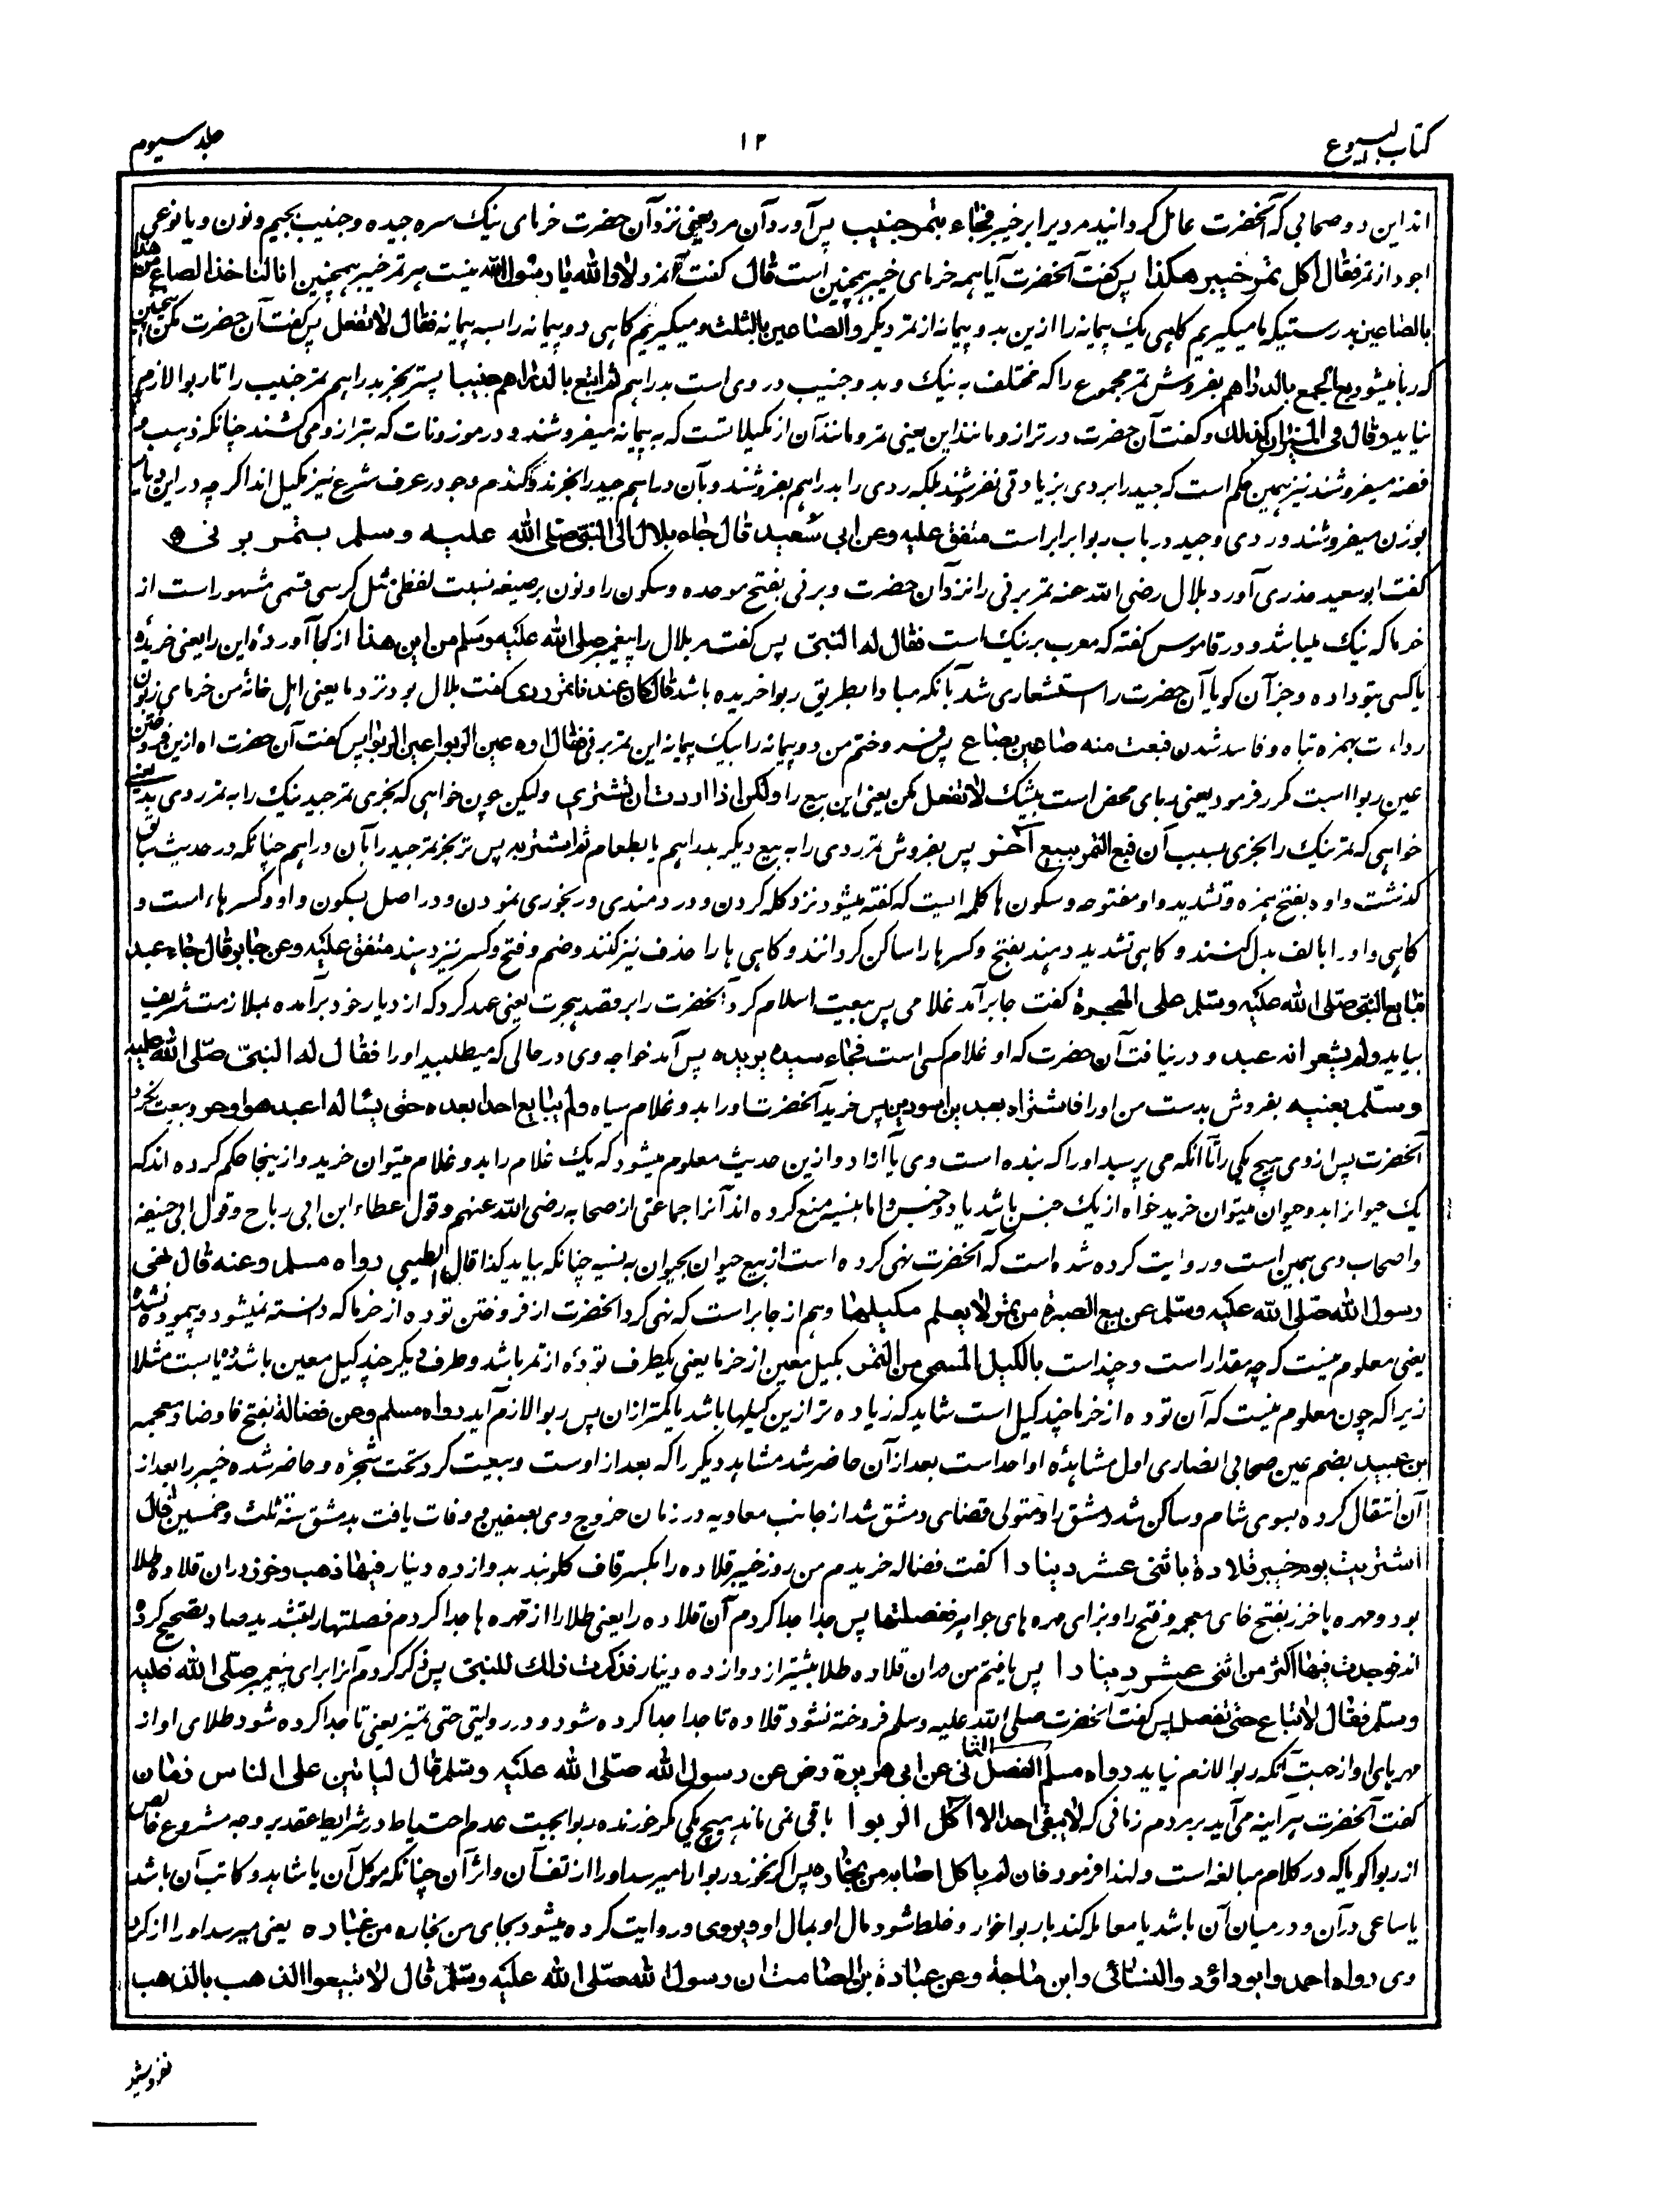 کتاب البیوع
۱۳
جلد سیوم
اند این دو صحابی که آنحضرت عامل گردانید مردیرا بر خیبر فجاء بتمر جنیب پس آورد آن مرد یعنی نزد آن حضرت خرمای نیک سره جیده و جنیب بجیم و نون و یا نوعی
اجود از تمر فقال اکل تمر خیبر هکذا پس گفت آنحضرت آیا همه خرمای خیبر همچنین است قال گفت آنمرد لا والله یا رسول الله نیست هر تمر خیبر همچنین انا لناخذ الصاع من هذا
بالصاعین بدرستیکه ما میگیریم گاهی یک پیمانه را ازین بدو پیمانه از تمر دیگر والصاعین بالثلث و میگیریم گاهی دو پیمانه را بسه پیمانه فقال لا تفعل پس گفت آن حضرت مکن این همچنین
که ربا میشود بع الجمع بالدراهم بفروش تمر مجموع را که مختلف به نیک و بد و جنیب در وی است بدراهم ثم ابتع بالدراهم جنیبا پستر بخر بدراهم تمر جنیب را تا ربوا لازم
نیاید وقال فی المیزان کذلک و گفت آن حضرت در ترازو مانند این یعنی تمر و مانند آن از مکیلاتست که به پیمانه میفروشند و در موزونات که بترازو می کشند چنانکه ذهب و
فضه میفروشند نیز همین حکم است که جید را بردی بزیادتی نفروشند بلکه ردی را بدراهم بفروشند و بآن دراهم جید را بخرند و گندم وجو در عرف شرع نیز مکیل اند اگر چه در این دیار
بوزن میفروشند و ردی وجید در باب ربوا برابر است متفق علیه وعن ابی سعید قال جاء بلال الی النبی صلی الله علیه وسلم بتمر برنی
گفت ابو سعید خدری آورد بلال رضی الله عنه تمر برنی را نزد آن حضرت و برنی بفتح موحده و سکون را و نون بر صیغه نسبت لفظی مثل کرسی قسمی مشهور است از
خرما که نیک میباشد و در قاموس گفته که معرب برنیک است فقال له النبی پس گفت مر بلال را پیغمبر صلی الله علیه وسلم من این هذا از کجا آوردۀ این را یعنی خریدۀ
یا کسی بتو داده و جز آن گویا آن حضرت را استشعاری شد بآنکه مبادا بطریق ربوا خریده باشد قال کان عندنا تمر ردی گفت بلال بود نزد ما یعنی اهل خانۀ من خرمای زبون
رداءت بهمزه تباه و فاسد شدن فبعت منه صاعین بصاع پس فروختم من دو پیمانه را بیک پیمانه این تمر برنی فقال اوه عین الربوا عین الربوا پس گفت آن حضرت اه ازین فروختن
عین ربوا است مکرر فرمود یعنی ربای محض است بیشک لا تفعل مکن یعنی این بیع را ولکن اذا اردت ان تشتری ولیکن چون خواهی که بخری تمر جید نیک را به تمر ردی بد یعنی
خواهی که تمر نیک را بخری بسبب آن فبع التمر ببیع آخر پس بفروش تمر ردی را به بیع دیگر بدراهم یا بطعام ثم اشتر به پس تر بخر تمر جید را بآن دراهم چنانکه در حدیث سابق
گذشت و اوه بفتح همزه و تشدید واو مفتوحه و سکون ها کلمه ایست که گفته میشود نزد گله کردن و دردمندی و رنجوری نمودن و در اصل بسکون واو و کسر هاء است و
گاهی واو را بالف بدل کنند و گاهی تشدید دهند بفتح و کسر ها را ساکن گردانند و گاهی ها را حذف نیز کنند و ضم و فتح و کسر نیز دهند متفق علیه وعن جابر قال جاء عبد
فبایع النبی صلی الله علیه وسلم علی الهجرة گفت جابر آمد غلامی پس بیعت اسلام کرد آنحضرت را بر قصد هجرت یعنی عهد کرد که از دیار خود برآمده بملازمت شریف
بیاید ولم یشعر انه عبد و در نیافت آن حضرت که او غلام کسی است فجاء سیده یریده پس آمد خواجه وی در حالی که میطلبید او را فقال له النبی صلی الله علیه
وسلم بعنیه بفروش بدست من او را فاشتراه بعبدین اسودین پس خرید آنحضرت او را بدو غلام سیاه ولم یبایع احدا بعده حتی یسأله اعبد هو او حر و بیعت نکرد
آنحضرت پس از وی هیچ یکی را تا آنکه می پرسید او را که بنده است وی یا آزاد و ازین حدیث معلوم میشود که یک غلام را بدو غلام میتوان خرید و ازینجا حکم کرده اند که
یک حیوانرا بدو حیوان میتوان خرید خواه از یک جنس باشد یا دو جنس و اما بنسیه منع کرده اند آنرا جماعتی از صحابه رضی الله عنهم وقول عطاء ابن ابی رباح وقول ابی حنیفه
و اصحاب وی همین است و روایت کرده شده است که آنحضرت نهی کرده است از بیع حیوان بحیوان به نسیه چنانکه بیاید کذا قال الطیبی رواه مسلم وعنه قال نهی
رسول الله صلی الله علیه وسلم عن بیع الصبرة من التمر لا یعلم مکیلها و هم از جابر است که نهی کرد آنحضرت از فروختن توده از خرما که دانسته نمیشود و پیموده نشده
یعنی معلوم نیست که چه مقدار است و چند است بالکیل المسمی من التمر بکیل معین از خرما یعنی یکطرف تودۀ از تمر باشد و طرف دیگر چند کیل معین باشد ده یا بیست مثلا
زیرا که چون معلوم نیست که آن توده از خرما چند کیل است شاید که زیاده تر ازین کیلها باشد یا کمتر ازان پس ربوا لازم آید رواه مسلم وعن فضالة بفتح فا و ضاد معجمه
بن عبید بضم عین صحابی انصاری اول مشاهدۀ او احد است بعد از آن حاضر شد مشاهد دیگر را که بعد از اوست و بیعت کرد تحت شجره و حاضر شده خیبر را بعد از
آن انتقال کرده بسوی شام و ساکن شد دمشق را و متولی قضای دمشق شد از جانب معاویه در زمان خروج وی بصفین و وفات یافت بدمشق سنة ثلث وخمسین قال
اشتریت یوم خیبر قلادة باثنی عشر دینارا گفت فضاله خریدم من روز خیبر قلاده را بکسر قاف گلوبند بدوازده دینار فیها ذهب وخرز دران قلاده طلا
بود و مهره با خرز بفتح خای معجمه و فتح را و بزای مهره های جواهر ففصلتها پس جدا جدا کردم آن قلاده را یعنی طلا را از مهره ها جدا کردم فصلتها را بتشدید صاد تصحیح کرده
اند فوجدت فیها اکثر من اثنی عشر دینارا پس یافتم من دران قلاده طلا بیشتر از دوازده دینار فذکرت ذلک للنبی پس ذکر کردم آنرا برای پیغمبر صلی الله علیه
وسلم فقال لا تباع حتی تفصل پس گفت آنحضرت صلی الله علیه وسلم فروخته نشود قلاده تا جدا جدا کرده شود و در روایتی حتی تمیز یعنی تا جدا کرده شود طلای او از
مهرهای او از جهت آنکه ربوا لازم نیاید رواه مسلم الفصل الثانی عن ابی هریرة رض عن رسول الله صلی الله علیه وسلم قال لیاتین علی الناس زمان
گفت آنحضرت هر آینه می آید بر مردم زمانی که لا یبقی احد الا اکل الربوا باقی نمی ماند هیچ یکی مگر خورنده ربوا بجهت عدم احتیاط در شرایط عقد بر وجه مشروع خالص
از ربوا گویا که در کلام مبالغه است و لهذا فرمود فان لم یاکل اصابه من بخاره پس اگر نخورد ربوا را میرسد او را از تف آن و اثر آن چنانکه موکل آن یا شاهد و کاتب آن باشد
یا ساعی در آن و در میان آن باشد یا معامله کند با ربوا خوار و خلط شود مال او بمال او ویروی و روایت کرده میشود بجای من بخاره من غباره یعنی میرسد او را از گرد
وی رواه احمد وابو داؤد والنسائی وابن ماجة وعن عبادة بن الصامت ان رسول الله صلی الله علیه وسلم قال لا تبیعوا الذهب بالذهب
نفروشید